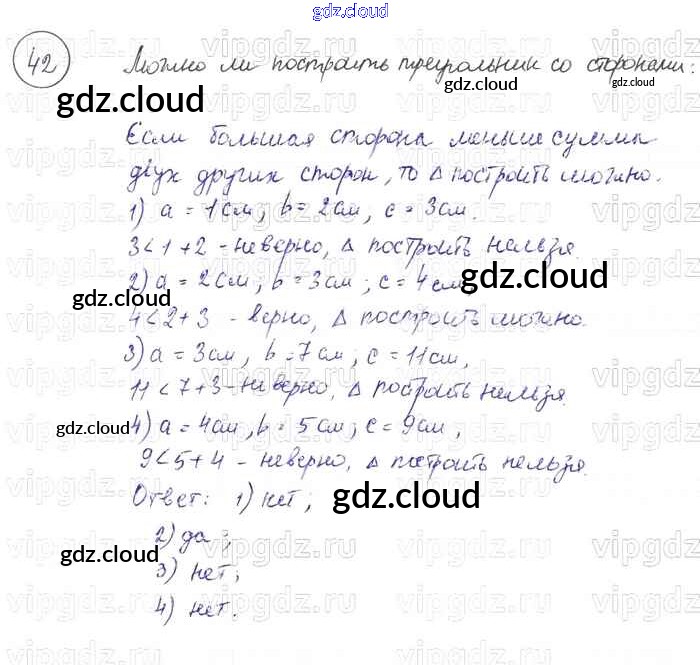 gdz.cloud
42 Можно ли построить треугольник со сторонами:
gdz.cloud
gdz.cloud
Если большая сторона меньше суммы
двух других сторон, то Δ построить можно.
1) a = 1см, b = 2см, c = 3см.
3<1+2 - неверно, Δ построить нельзя.
2) a = 2см, b = 3см; c = 4см
gdz.cloud
gdz.cloud
4<2+3 - верно, Δ построить можно.
3) a = 3см, b = 7см, c = 11см,
11<7+3 - неверно, Δ построить нельзя.
4) a = 4см, b = 5см; c = 9см,
gdz.cloud
gdz.cloud
9<5+4 - неверно, Δ построить нельзя.
Ответ: 1) нет;
gdz.cloud
2) да;
gdz.cloud
3) нет;
4) нет.
vipgdz.ru